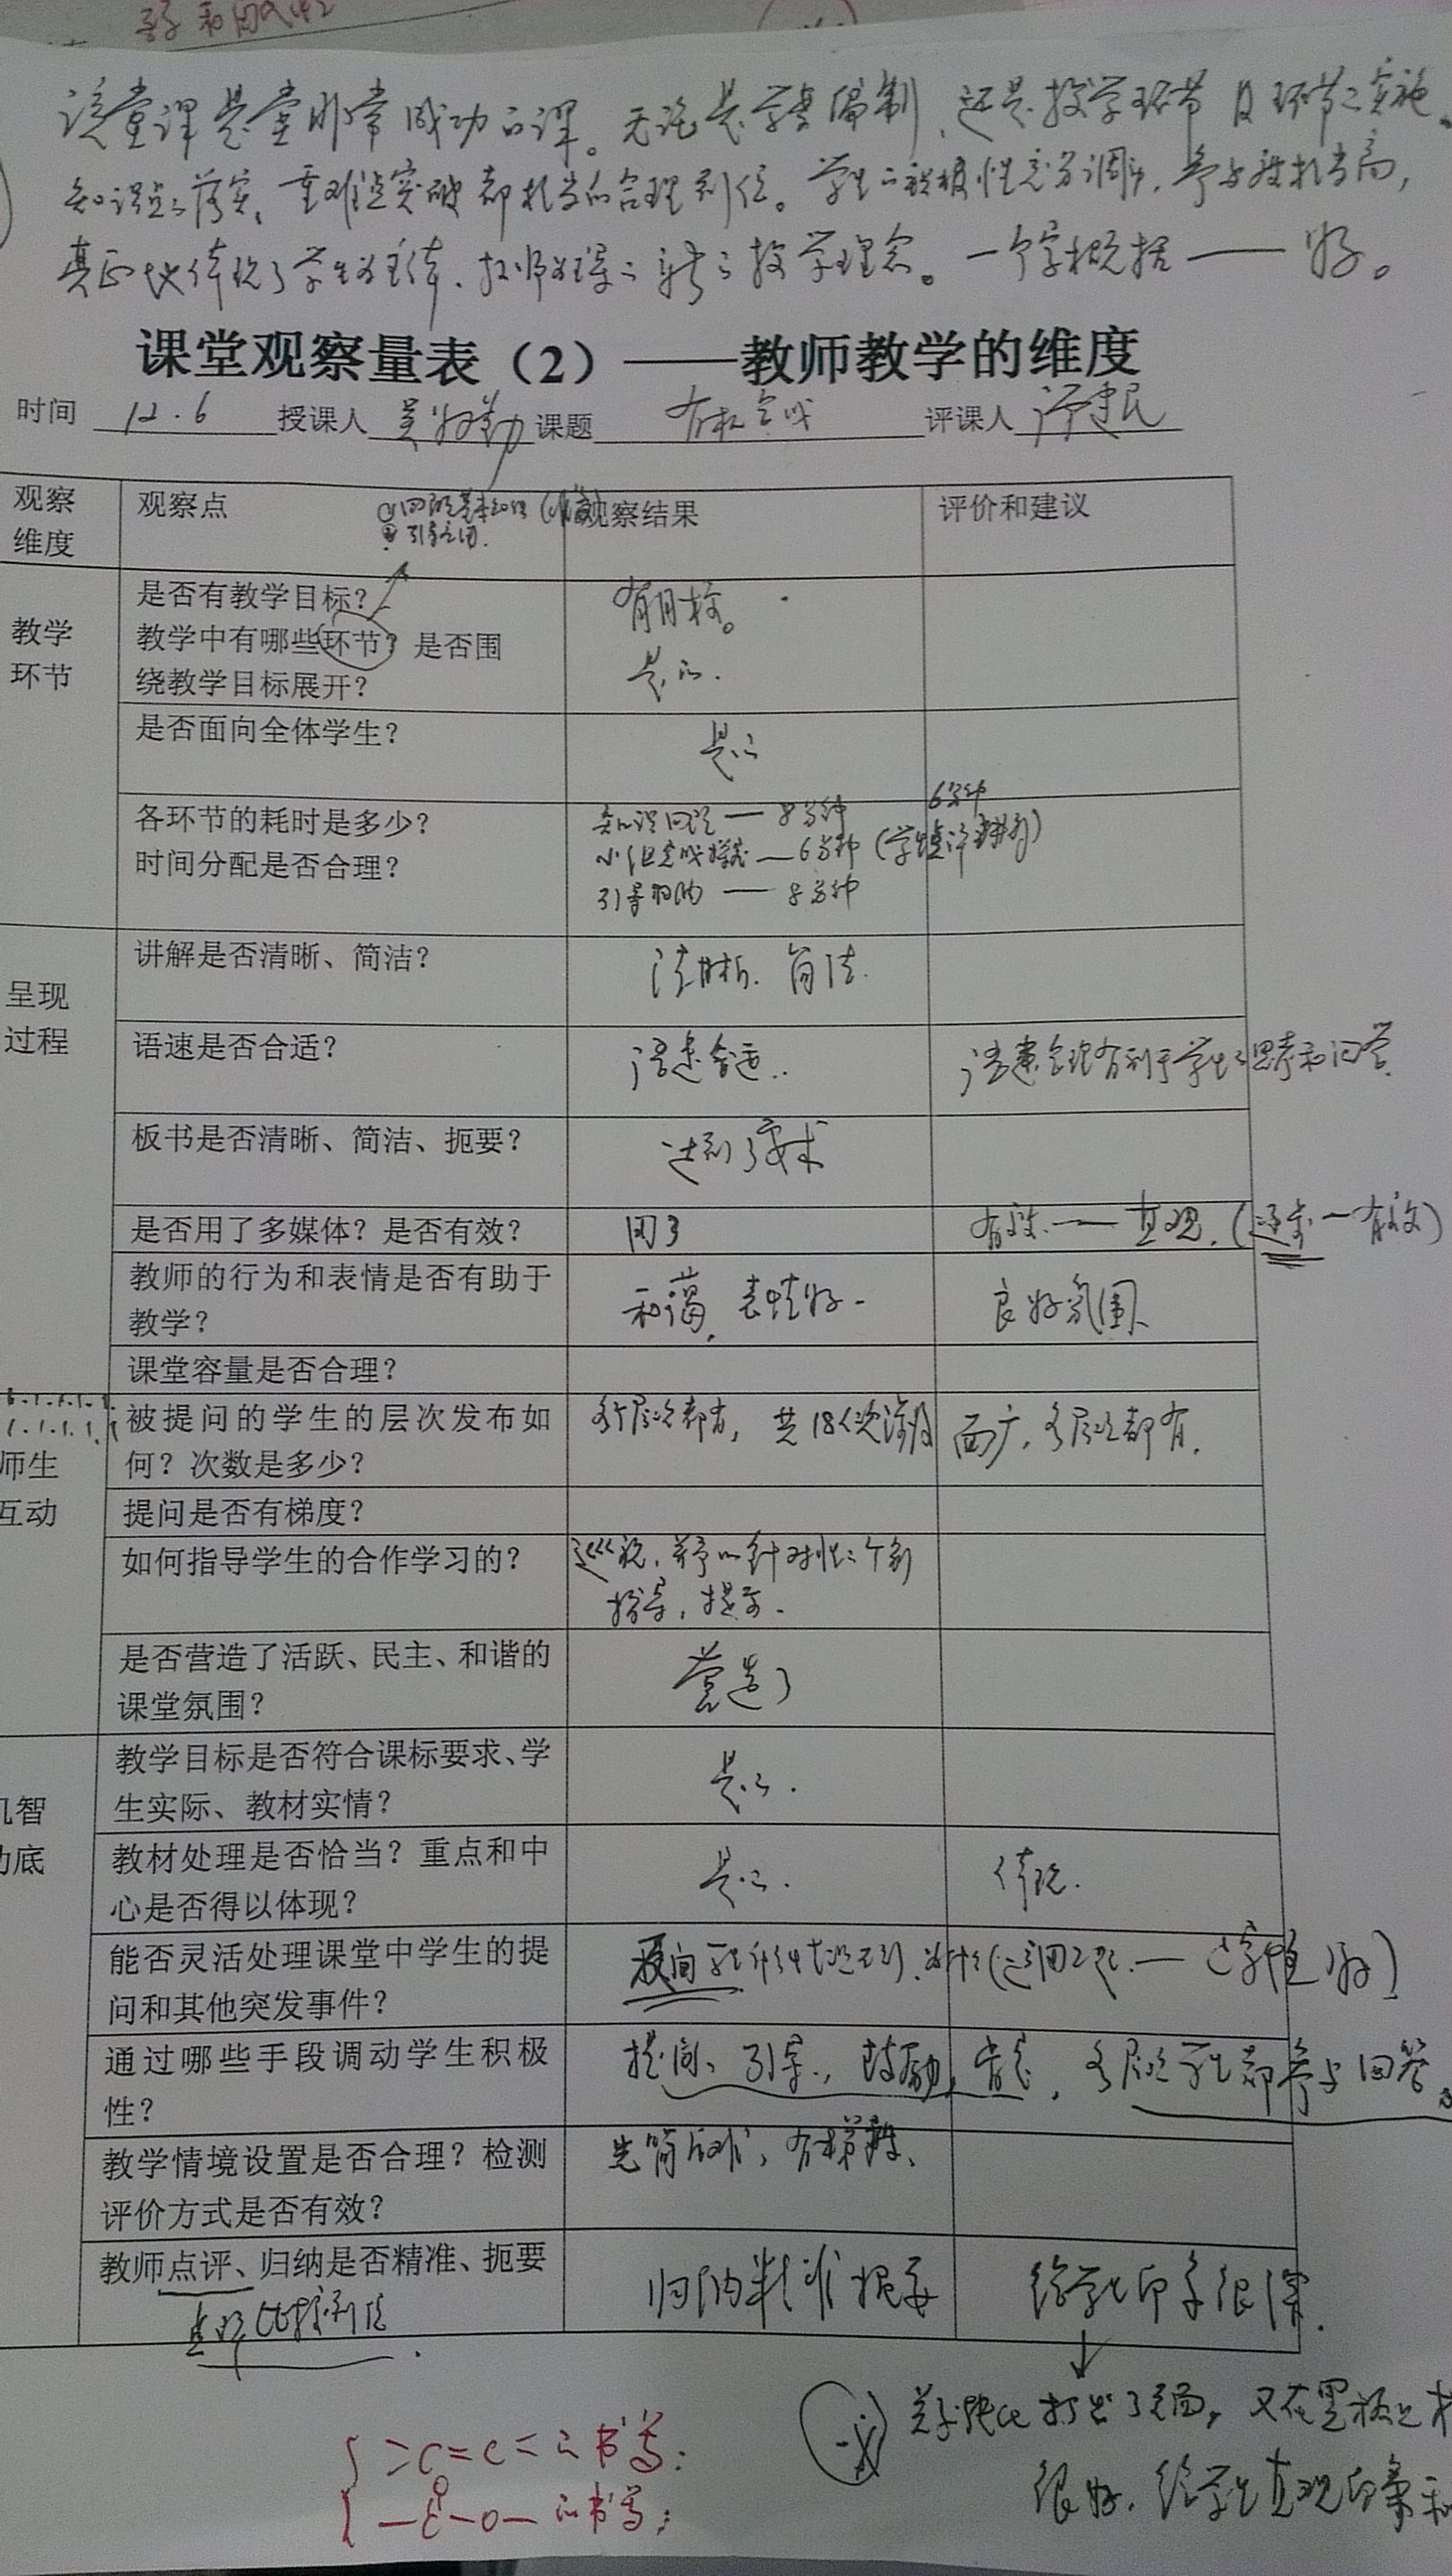 该堂课是堂非常成功的课。无论是学案编制、还是教学环节及环节之实施、
知识点之落实、重难点突破都相当的合理到位。学生的积极性充分调动,参与性相当高,
真正地体现了学生为主体、教师为主导之新之教学理念。一个字概括——好。
课堂观察量表(2)——教师教学的维度
时间 12.6 授课人 课题 有机合成 评课人
观察维度 观察点 观察结果 评价和建议
引导应用.
教学环节
是否有教学目标?
教学中有哪些环节?是否围
绕教学目标展开?
有目标。
是的.
是否面向全体学生?
是的
各环节的耗时是多少?
时间分配是否合理?
知识回顾——8分钟
小组完成 —6分钟 6分钟
引导 —— 8分钟
呈现过程
讲解是否清晰、简洁?
清晰.简洁.
语速是否合适?
语速合适..
语速合理有利于学生之思考和回答.
板书是否清晰、简洁、扼要?
达到了要求
是否用了多媒体?是否有效?
用了
有效.——直观.
教师的行为和表情是否有助于
教学?
和蔼,表情好.
良好氛围.
课堂容量是否合理?
师生互动
被提问的学生的层次发布如
何?次数是多少?
各个层次都有,共18人次
面广,各层次都有.
提问是否有梯度?
如何指导学生的合作学习的?
巡视,并予以针对性之个别
指导,提示.
是否营造了活跃、民主、和谐的
课堂氛围?
营造了
机智功底
教学目标是否符合课标要求、学
生实际、教材实情?
是的.
教材处理是否恰当?重点和中
心是否得以体现?
是的.
体现.
能否灵活处理课堂中学生的提
问和其他突发事件?
通过哪些手段调动学生积极
性?
提问、引导、鼓励、 各层次学生都参与回答。
教学情境设置是否合理?检测
评价方式是否有效?
先简后难,有梯度.
教师点评、归纳是否精准、扼要
点评比较到位
归纳精准扼要
给学生印象很深.
打出了 ,又在黑板上
很好.给学生直观印象和
>C=C<的书写;
O
—C—O—的书写;